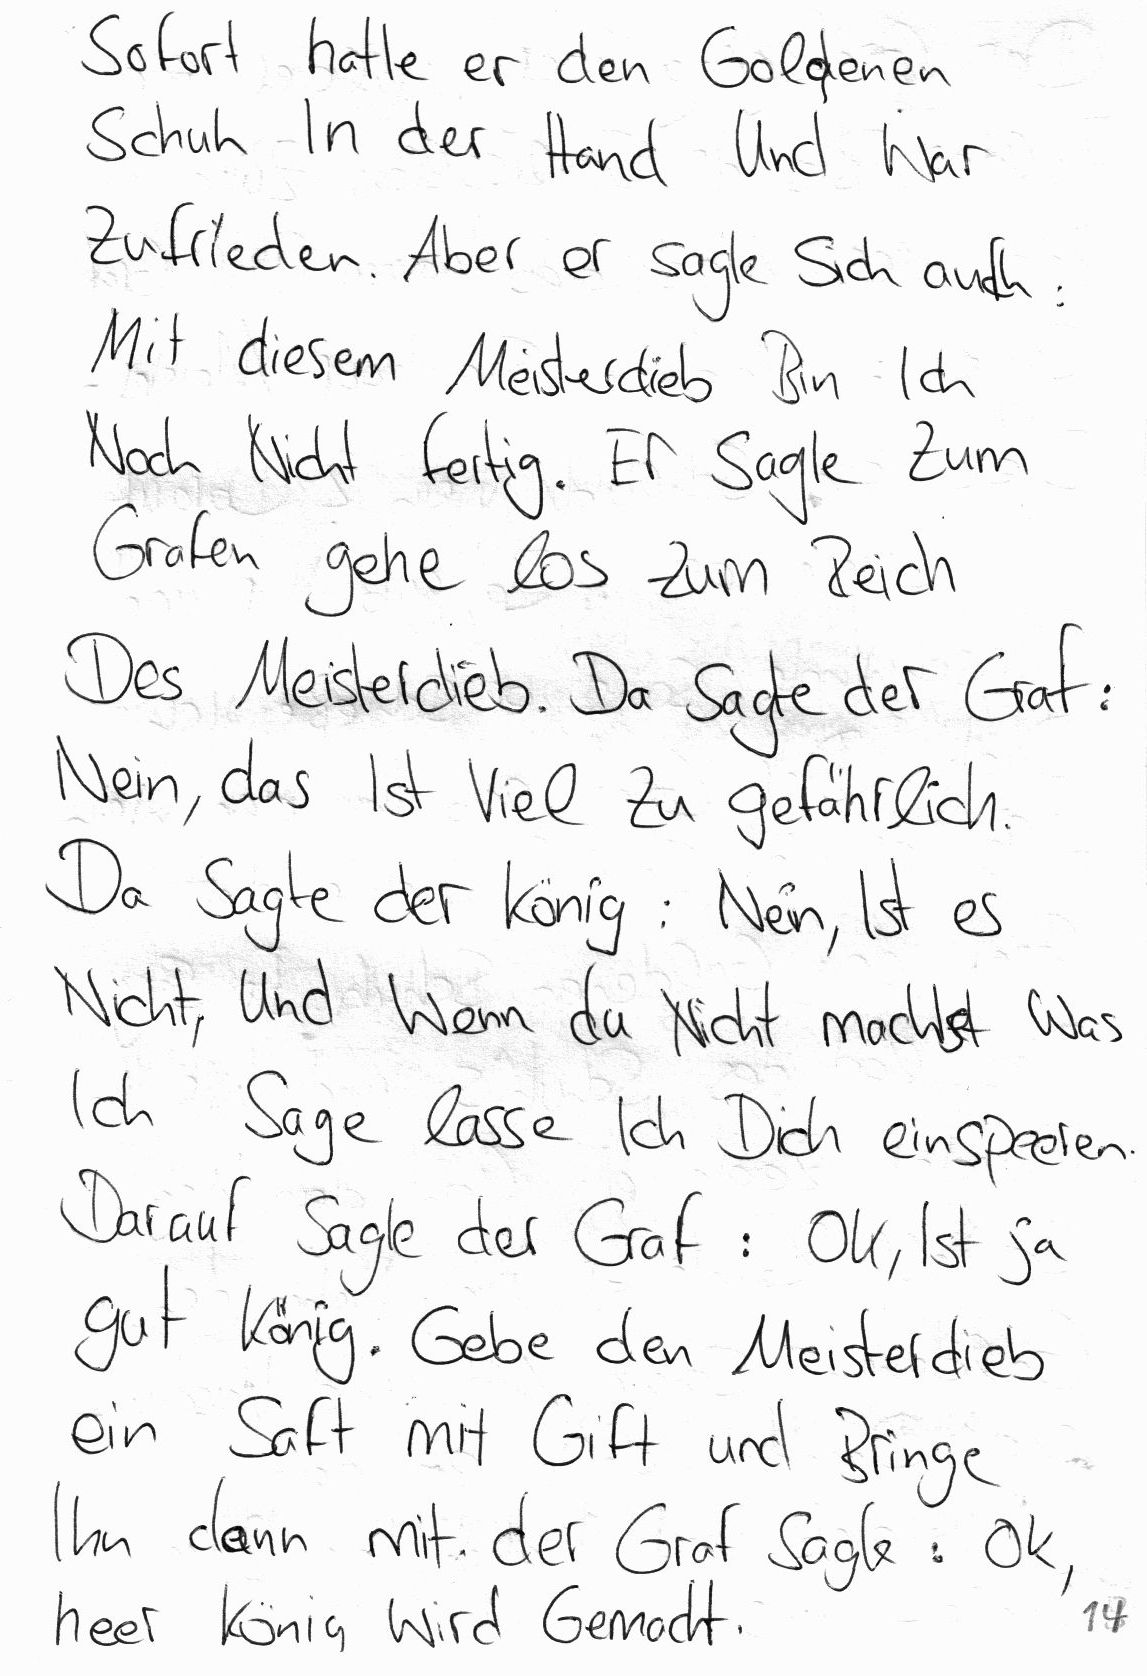 Sofort hatte er den Goldenen
Schuh In der Hand Und War
Zufrieden. Aber er sagte Sich auch:
Mit diesem Meisterdieb Bin Ich
Noch Nicht fertig. Er Sagte Zum
Grafen gehe los zum Reich
Des Meisterdieb. Da Sagte der Graf:
Nein, das Ist Viel Zu gefährlich.
Da Sagte der König: Nein, Ist es
Nicht, Und Wenn du Nicht machst Was
Ich Sage lasse Ich Dich einspeeren.
Darauf Sagte der Graf: OK, Ist ja
gut König. Gebe den Meisterdieb
ein Saft mit Gift und Bringe
Ihn dann mit. der Graf Sagte: OK,
heer König Wird Gemacht.
14